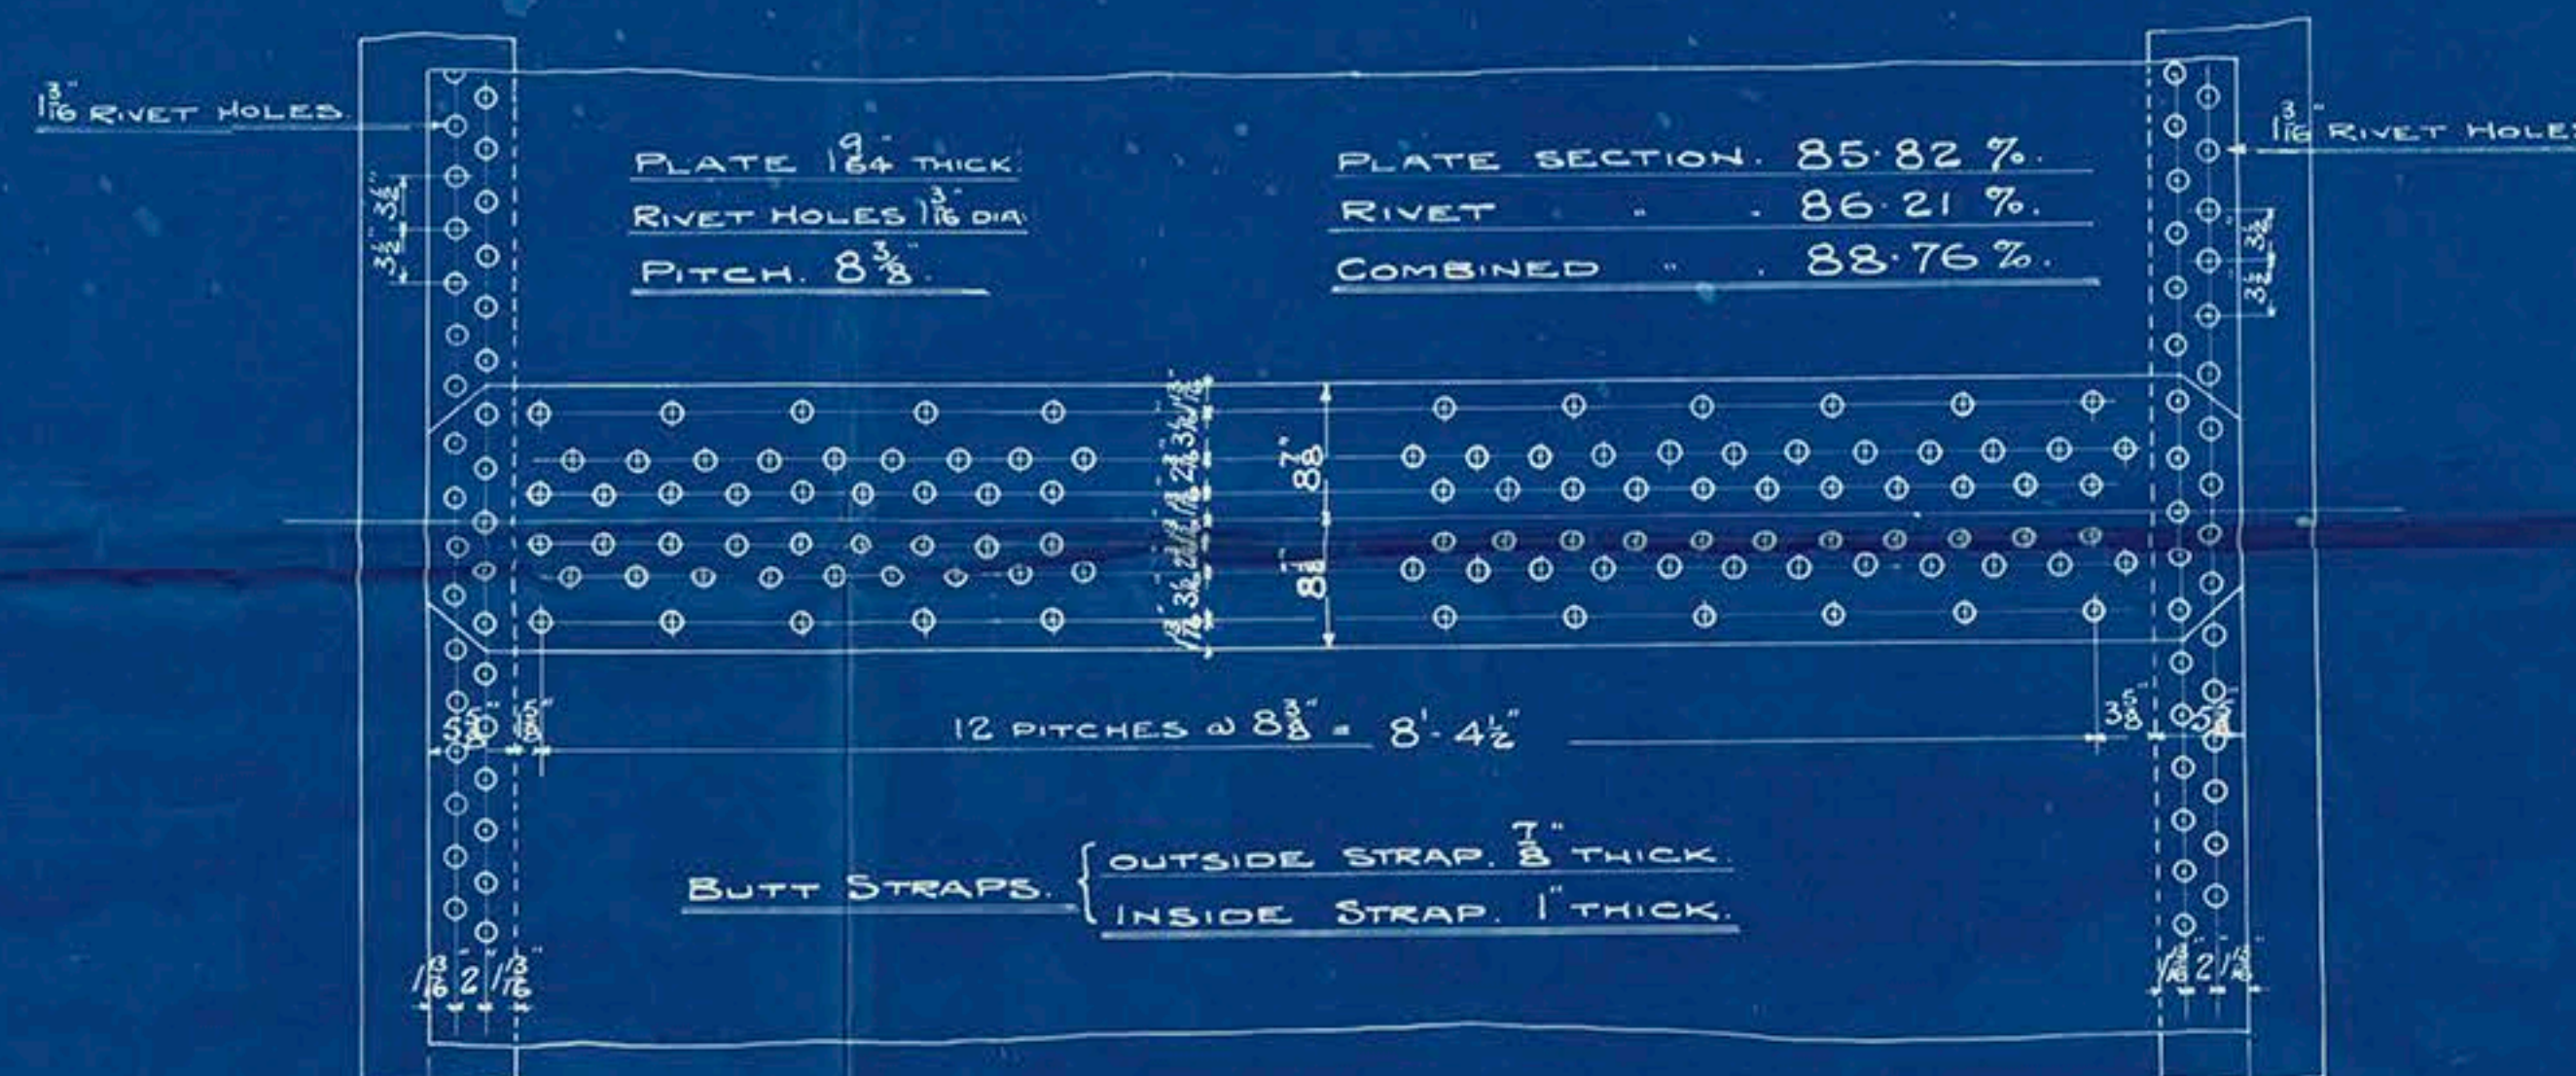 1 3/16" RIVET HOLES.
PLATE 1 9/64" THICK.
RIVET HOLES 1 3/16" DIA.
PITCH. 8 3/8".
PLATE SECTION. 85.82 %.
RIVET " . 86.21 %.
COMBINED " . 88.76 %.
1 3/16" RIVET HOLES
3 1/2" 3 1/2"
3 1/2" 3 1/2"
8 7/8"
8 7/8"
5 5/8" 1 5/8"
12 PITCHES @ 8 3/8" = 8'-4 1/2"
3 5/8" 5 5/8"
BUTT STRAPS.
OUTSIDE STRAP. 7/8" THICK.
INSIDE STRAP. 1" THICK.
1 13/16" 2" 1 13/16"
1 13/16" 2" 1 13/16"